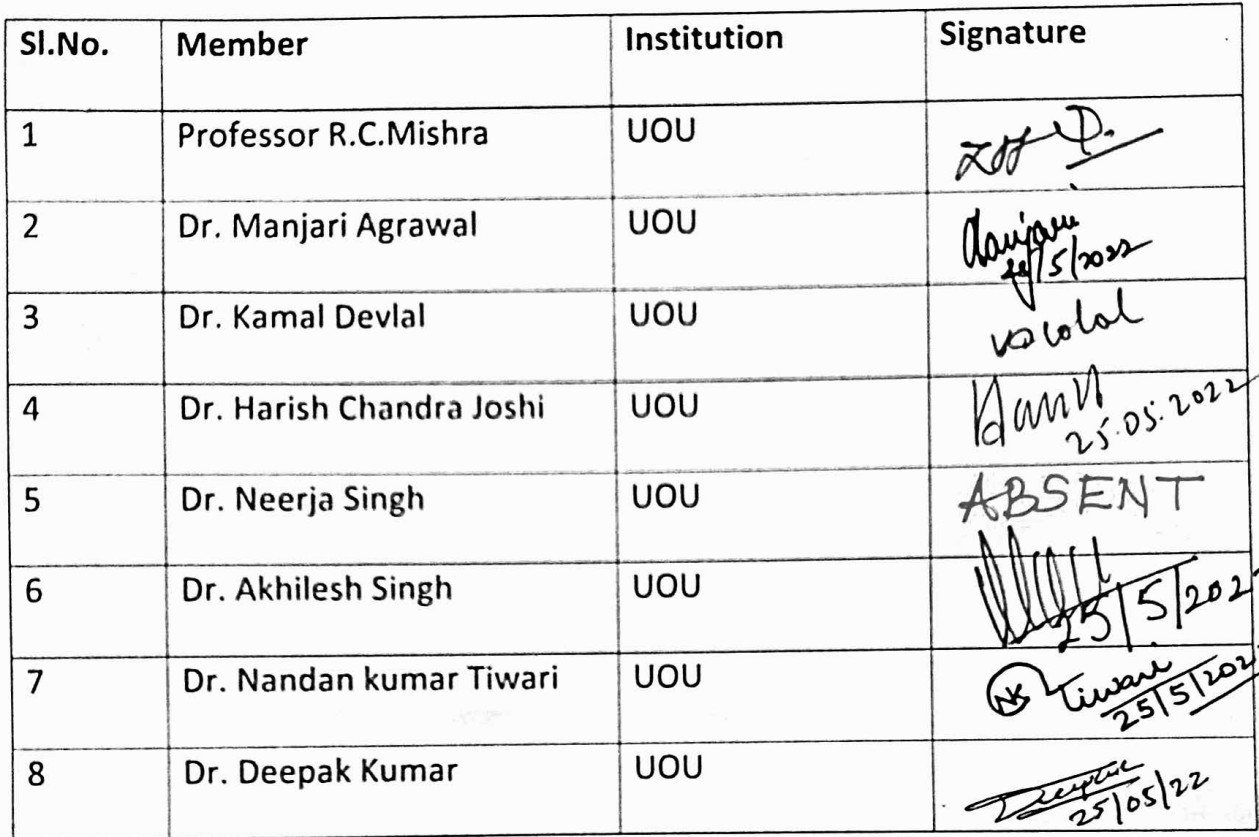 Sl.No. Member Institution Signature
1 Professor R.C.Mishra UOU
2 Dr. Manjari Agrawal UOU Manjari
/5/2022
3 Dr. Kamal Devlal UOU
4 Dr. Harish Chandra Joshi UOU
25.05.2022
5 Dr. Neerja Singh UOU ABSENT
6 Dr. Akhilesh Singh UOU
25/5/202
7 Dr. Nandan kumar Tiwari UOU NK Tiwari
25/5/202
8 Dr. Deepak Kumar UOU Deepak
25/05/22